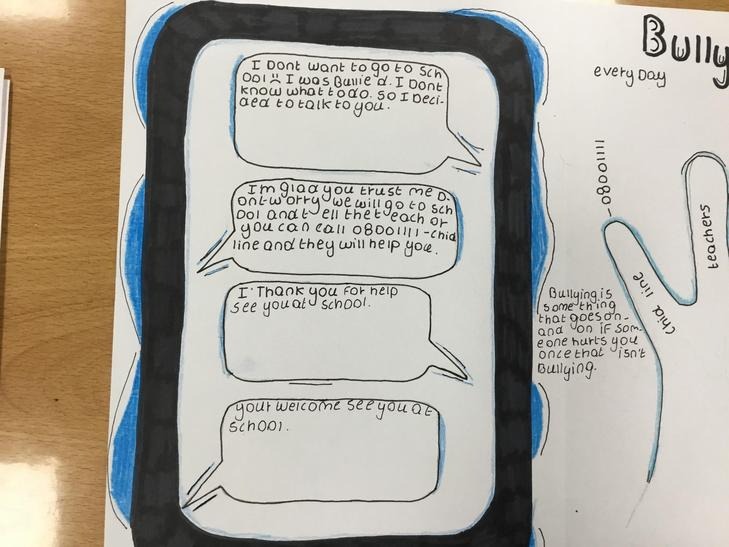 I Dont want to go to sch
ool I was Bullied. I Dont
know what to do. So I Deci-
ded to talk to you.
Im glad you trust me D-
ont worry we will go to Sch
ool and tell the teach or
you can call 08001111-chid
line and they will help you.
I Thank you for help
see you at school.
your welcome see you at
school.
Bully
every Day
-08001111
chid line
teachers
Bullying is
something
that goes on-
and on if Som-
eone hurts you
once that isn't
Bullying.